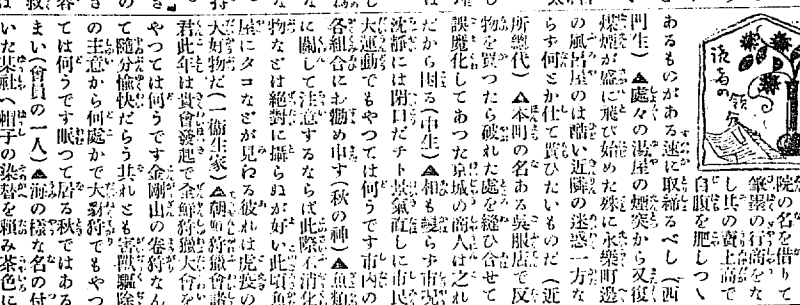 院の名を借りて
筆墨の行商をな
し其の賣上高で
自腹を肥しつゝ
あるものがある速に取締るべし（西
門生）▲處々の湯屋の煙突から又復
煤煙が盛に飛び始めた殊に永樂町邊
の風呂屋のは酷い近隣の迷惑一方な
らず何とか仕て貰ひたいものだ（近
所總代）▲本町の名ある呉服店で反
物を買つたら破れた處を縫ひ合せて
誤魔化してあつた京城の商人は之れ
だから困る（中生）▲相も變らず市況
沈靜には閉口だチト景氣直しに市民
大運動でもやつては何うです市内の
各組合にお勸め申す（秋の神）▲魚類
に關して注意するならば此際不消化
物などは絶對に攝らぬが好い此頃魚
屋にタコなどが見わる彼れは虎疫の
大好物だ（一衛生家）▲朝鮮狩獵會諸
君此年は貴會發起で全鮮狩獵大會を
やつては何うです金剛山の卷狩なん
て隨分愉快だらう共れとも害獸驅除
の主意から何處かで大羂狩でもやつ
ては何うです眠つて居る秋ではある
まい（會員の一人）▲海の樣な名の付
いた其社へ帽子の染替を頼み茶色に